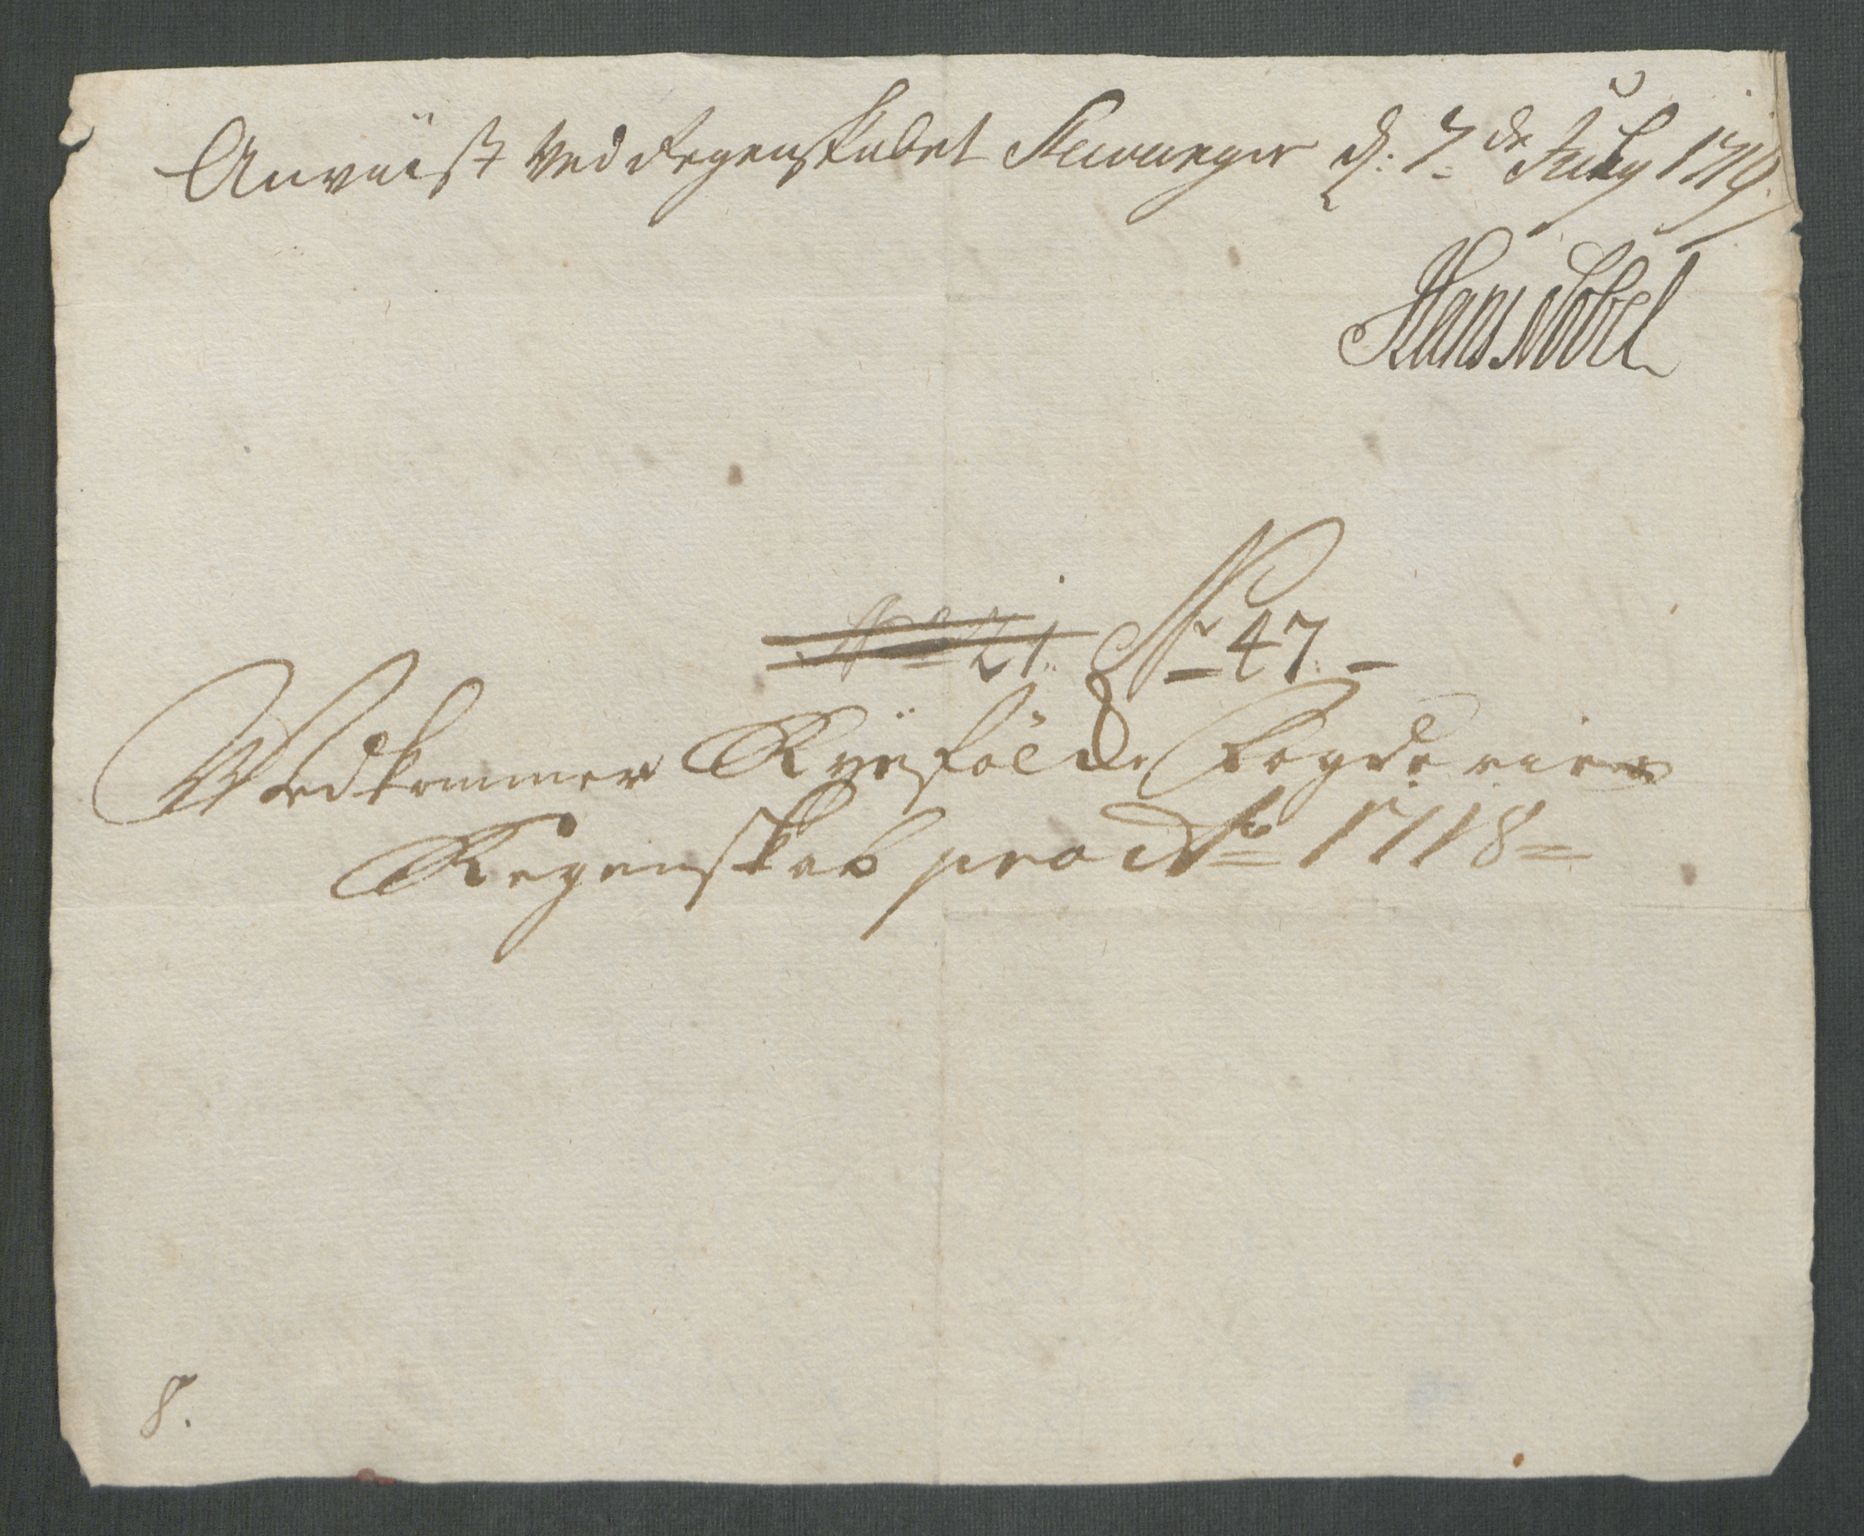 Anvüist ved Regenskabet Stavanger d: 7de July 1719.
Hans Nobel
No 21. No 47.
Vedkommer Ryefölcke Fogderies
Regenskab pro Ao 1718
8.